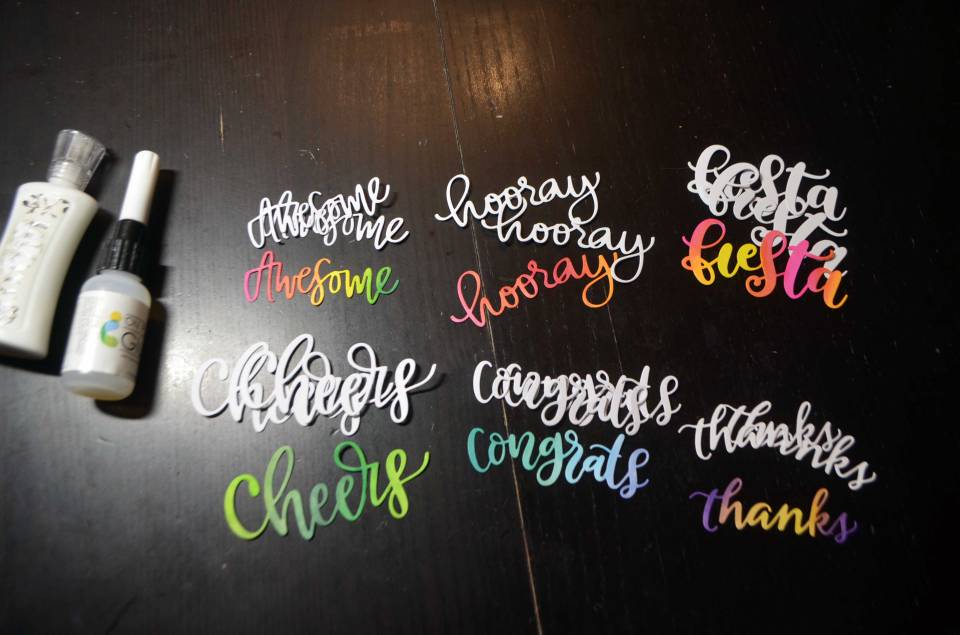 Awesome
Awesome
Awesome
hooray
hooray
hooray
fiesta
fiesta
fiesta
Cheers
Cheers
Cheers
Congrats
Congrats
Congrats
thanks
thanks
thanks